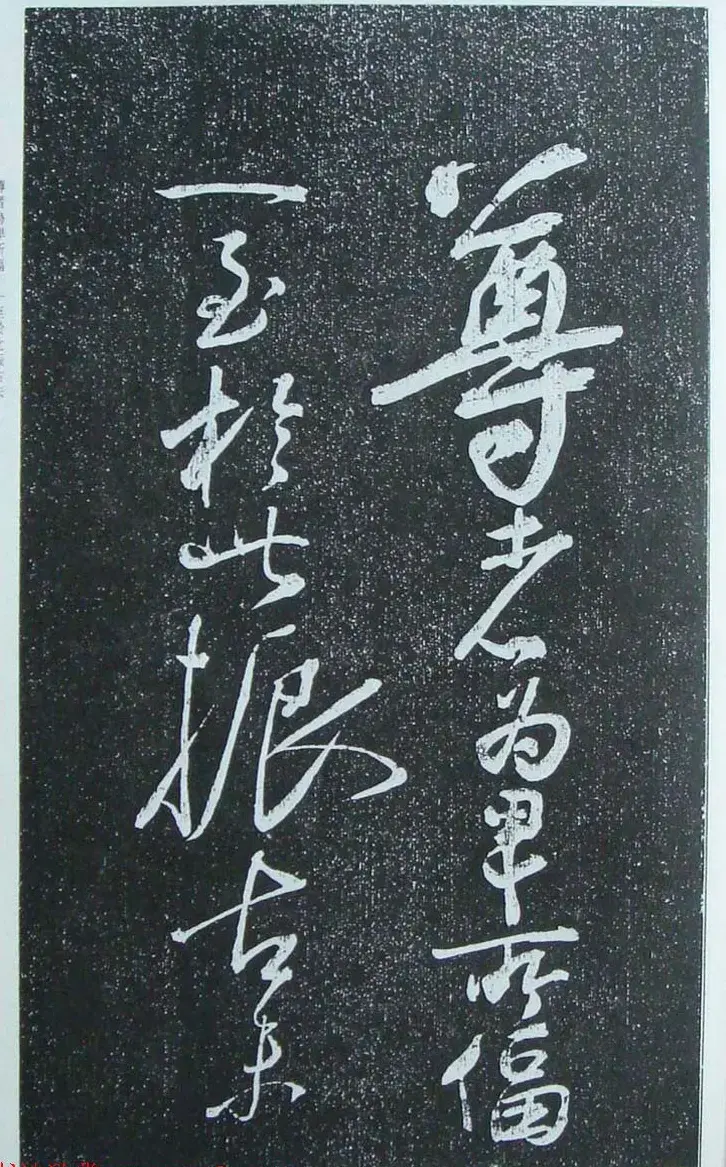 尊者为卑所偪
一至於此振古未